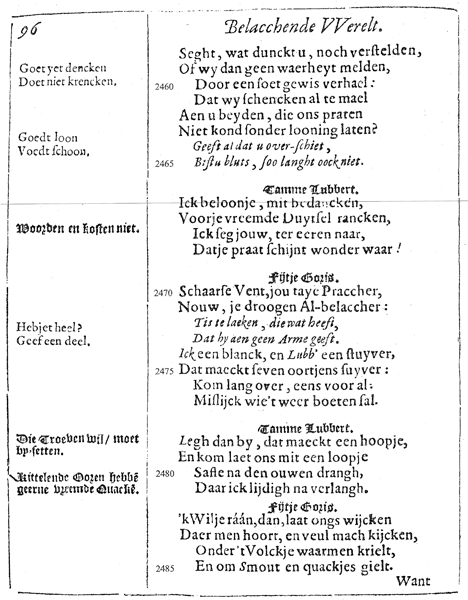 96
Belacchende VVerelt.
Seght, wat dunckt u, noch verstelden,
Goet yet dencken
Of wy dan geen waerheyt melden,
Doet niet krencken.
2460 Door een soet gewis verhael:
Dat wy schencken al te mael
Aen u beyden, die ons praten
Goedt loon
Niet kond sonder looning laten?
Voedt schoon,
Geeft al dat u over-schiet,
2465 B:stu bluts, soo langht oock niet.
Tamme Lubbert.
Ick beloonje, mit bedancken,
Voorje vreemde Duytsel rancken,
Woorden en kosten niet.
Ick seg jouw, ter eeren naar,
Datje praat schijnt wonder waar!
Fijtje Goris.
2470 Schaarse Vent, jou taye Praccher,
Nouw, je droogen Al-belaccher:
Tis te laeken, die wat heeft,
Hebjet heel?
Dat hy aen geen Arme geeft.
Geef een deel.
Ick een blanck, en Lubb' een stuyver,
2475 Dat maeckt seven oortjens suyver:
Kom lang over, eens voor al:
Mislijck wie't weer boeten sal.
Tamme Lubbert.
Die Troeven wil/ moet
by-setten.
Legh dan by, dat maeckt een hoopje,
En kom laet ons mit een loopje
Kittelende Ooren hebbē
geerne vreemde Quackē.
2480 Safte na den ouwen drangh,
Daar ick lijdigh na verlangh.
Fijtje Goris.
'k Wilje ráán, dan, laat ongs wijcken
Daer men hoort, en veul mach kijcken,
Onder 't Volckje waarmen krielt,
2485 En om Smout en quackjes gielt.
Want